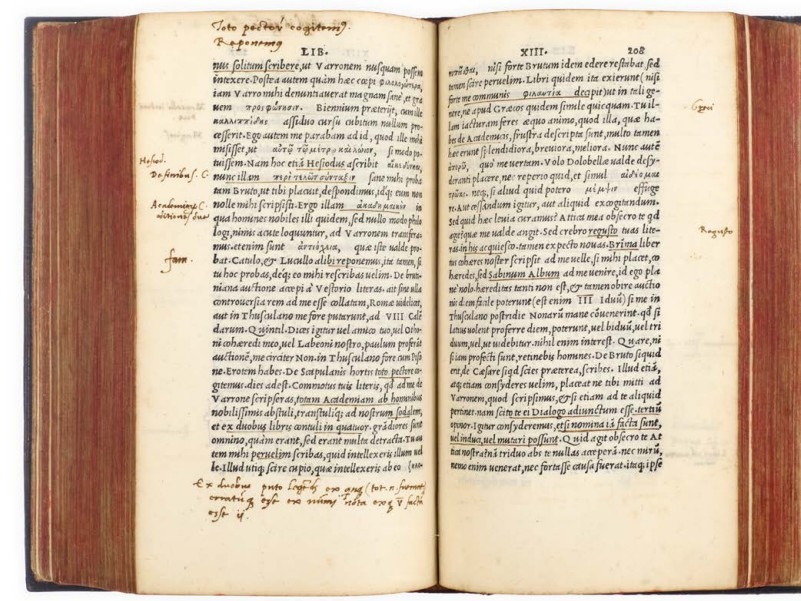 Toto pectore cogitemus.
Reponemus
LIB.
nus solitum scribere, ut Varronem nusquam possem
intexere. Postea autem quàm hæc cœpi φιλολογώτερα,
iam Varro mihi denuntiauerat magnam sanè, et gra
uem προσφώνησιν. Biennium præterijt, cum ille
καλλιππίδης assiduo cursu cubitum nullum pro-
cesserit. Ego autem me parabam ad id, quod ille mihi
misisset, ut αὐτῷ τῷ μέτρῳ καὶ λώϊον, si modo po-
tuissem. Nam hoc etiã Hesiodus ascribit αἴκε δύνηαι,
nunc illam περὶ τελῶν σύνταξιν sanè mihi proba
tam Bruto, ut tibi placuit, despondimus, idq; eum non
nolle mihi scripsisti. Ergo illam ἀκαδημικὴν in
qua homines nobiles illi quidem, sed nullo modo philo
logi, nimis acutè loquuntur, ad Varronem transfera-
mus. etenim sunt ἀντιόχεια, quæ iste ualde pro-
bat. Catulo, & Lucullo alibi reponemus, ita tamen, si
tu hoc probas, deq; eo mihi rescribas uelim. De brin-
niana auctione accepi à Vestorio literas. ait sine ulla
controuersia rem ad me esse collatam, Romæ uidelicet,
aut in Thusculano me fore putarunt, ad VIII Calẽ
darum. Quintil. Dices igitur uel amico tuo, uel Otho-
ni cohæredi meo, uel Labeoni nostro, paulum proferat
auctionẽ, me circiter Non. in Thusculano fore cum Piso
ne. Erotem habes. De Scapulanis hortis toto pectore co-
gitemus. dies adest. Commotus tuis literis, qd ad me de
Varrone scripseras, totam Academiam ab hominibus
nobilissimis abstuli, transtuliq; ad nostrum sodalem,
et ex duobus libris contuli in quatuor. grãdiores sunt
omnino, quàm erant, sed erant multa detracta. Tu au
tem mihi peruelim scribas, quid intellexeris illum uel
le. Illud utiq; scire cupio, quæ intellexeris ab eo
Hesiod.
Academiam C.
fam.
Ex duobus puto
erratum
XIII. 208
nisi forte Brutum idem edere restabat. sed
tamen scire peruelim. Libri quidem ita exierunt (nisi
forte me communis φιλαυτία decipit) ut in tali ge-
nere, ne apud Græcos quidem simile quicquam. Tu il-
lam iacturam feres æquo animo, quod illa, quæ ha-
bes de Academicis, frustra descripta sunt, multo tamen
hæc erunt splendidiora, breuiora, meliora. Nunc autẽ
quò me uertam. Volo Dolobellæ ualde desy-
deranti placere, nec reperio quid, et simul αἰδέομαι
neq; si aliud quid potero μέμψιν effuge
re. Aut cessandum igitur, aut aliquid excogitandum.
Sed quid hæc leuia curamus? Attica mea obsecro te qd
agit? quæ me ualde angit. Sed crebro regusto tuas lite-
ras. in his acquiesco. tamen expecto nouas. Brinna liber
tus cohæres noster scripsit ad me uelle, si mihi placet, co
hæredes, sed Sabinum Album ad me uenire, id ego pla
nè nolo. hæreditas tanti non est, & tamen obire auctio
nis diem facile poterunt (est enim III Iduũ) si me in
Thusculano postridie Nonarũ mane cõuenerint. qd si
latius uolent proferre diem, poterunt, uel biduũ, uel tri
duum, uel ut uidebitur. nihil enim interest. Quare, ni
si iam profecti sunt, retinebis homines. De Bruto si quid
erit, de Cæsare si qd scies præterea, scribes. Illud etiã,
atq; etiam consyderes uelim, placeat ne tibi mitti ad
Varronem, quod scripsimus, etsi etiam ad te aliquid
pertinet. nam scito te ei Dialogo adiunctum esse tertiũ
opinor. igitur consyderemus, etsi nomina iã facta sunt,
uel induci, uel mutari possunt. Quid agit obsecro te At
tica nostra? nã triduo abs te nullas acceperã. nec mirũ,
nemo enim uenerat, nec fortasse causa fuerat. itaq; ipse
Regusto